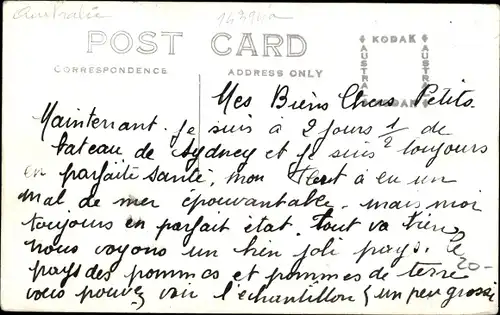 Australie
14390a
POST CARD
KODAK
AUSTRAL
CORRESPONDENCE
ADDRESS ONLY
Mes Biens Chers Petits.
Maintenant. je suis à 2 jours 1/2 de
bateau de Sydney et je suis toujours
en parfaite santé, mon à eu un
mal de mer épouvantable. mais moi
toujours en parfait état. tout va bien,
nous voyons un bien joli pays. le
pays des pommes et pommes de terre
vous pouvez voir l'échantillon (un peu grossi